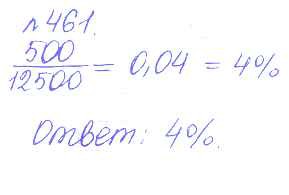 №461.
500/12500 = 0,04 = 4%
Ответ: 4%.